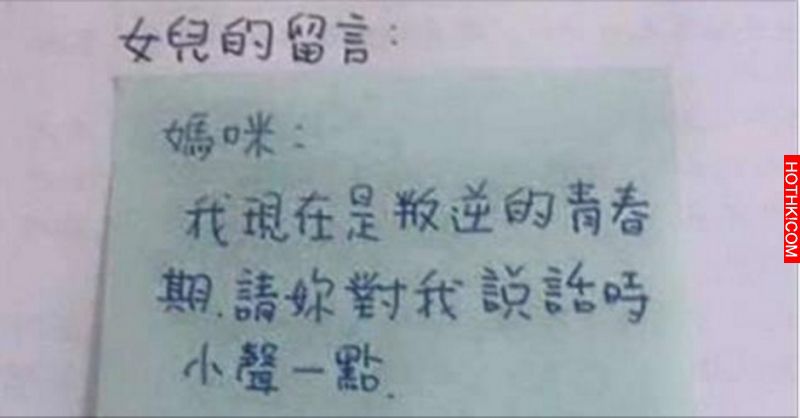 女兒的留言:
媽咪:
我現在是叛逆的青春
期.請妳對我說話時
小聲一點.
HOTHK!COM